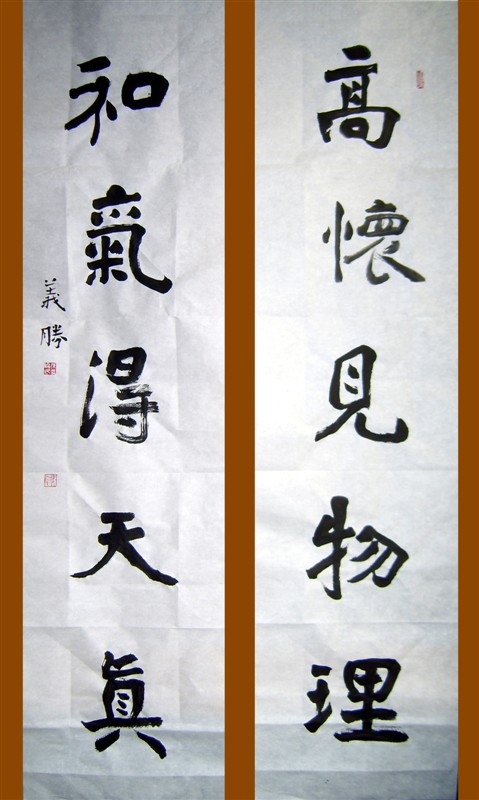 高懷見物理
和氣得天真
義勝